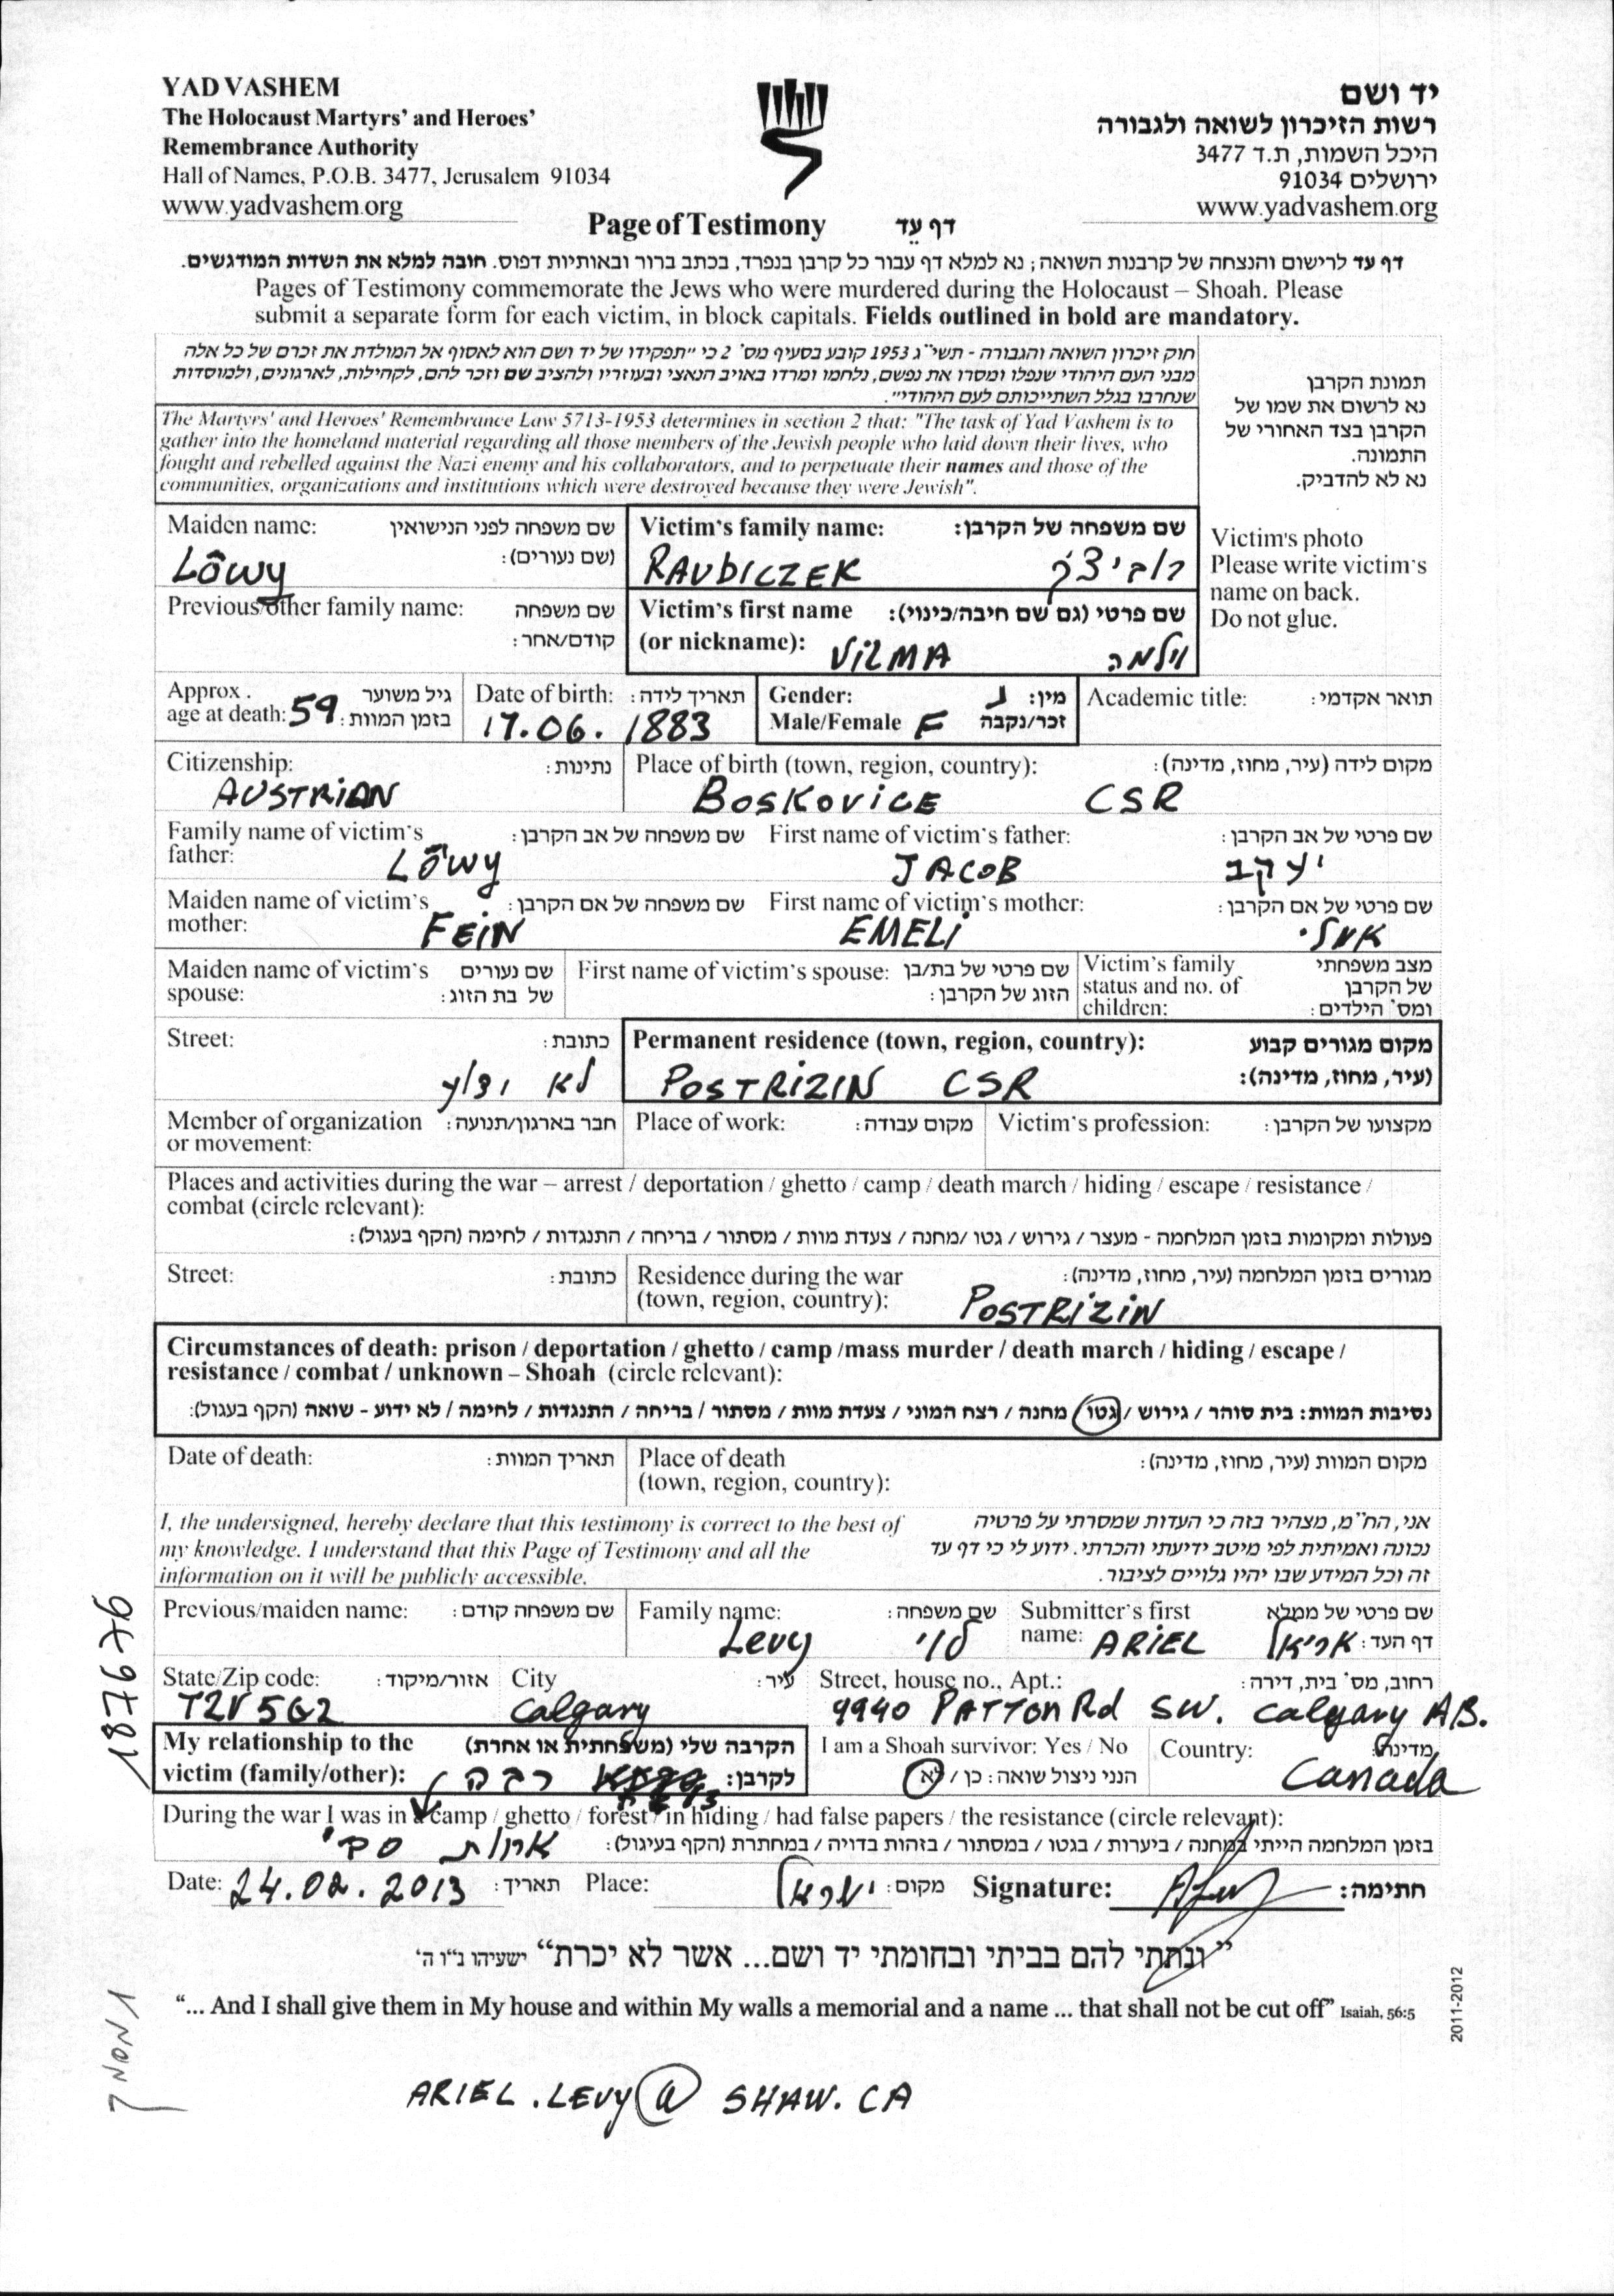 YAD VASHEM
The Holocaust Martyrs' and Heroes'
Remembrance Authority
Hall of Names, P.O.B. 3477, Jerusalem 91034
www.yadvashem.org
יד ושם
רשות הזיכרון לשואה ולגבורה
היכל השמות, ת.ד 3477
ירושלים 91034
www.yadvashem.org
Page of Testimony דף עֵד
דף עד לרישום והנצחה של קרבנות השואה; נא למלא דף עבור כל קרבן בנפרד, בכתב ברור ובאותיות דפוס. חובה למלא את השדות המודגשים.
Pages of Testimony commemorate the Jews who were murdered during the Holocaust – Shoah. Please
submit a separate form for each victim, in block capitals. Fields outlined in bold are mandatory.
חוק זיכרון השואה והגבורה - תשי"ג 1953 קובע בסעיף מס' 2 כי "תפקידו של יד ושם הוא לאסוף אל המולדת את זכרם של כל אלה
מבני העם היהודי שנפלו ומסרו את נפשם, נלחמו ומרדו באויב הנאצי ובעוזריו ולהציב שם וזכר להם, לקהילות, לארגונים, ולמוסדות
שנחרבו בגלל השתייכותם לעם היהודי".
The Martyrs' and Heroes' Remembrance Law 5713-1953 determines in section 2 that: "The task of Yad Vashem is to
gather into the homeland material regarding all those members of the Jewish people who laid down their lives, who
fought and rebelled against the Nazi enemy and his collaborators, and to perpetuate their names and those of the
communities, organizations and institutions which were destroyed because they were Jewish".
תמונת הקרבן
נא לרשום את שמו של
הקרבן בצד האחורי של
התמונה.
נא לא להדביק.
Victim's photo
Please write victim's
name on back.
Do not glue.
Maiden name: שם משפחה לפני הנישואין
(שם נעורים):
Löwy
Victim's family name: שם משפחה של הקרבן:
RAUBICZEK רוביצ'ק
Previous/other family name: שם משפחה
קודם/אחר:
Victim's first name שם פרטי (גם שם חיבה/כינוי):
(or nickname): ViLMA וילמה
Approx. גיל משוער
age at death: 59 בזמן המוות:
Date of birth: תאריך לידה:
17.06.1883
Gender: מין: נ
Male/Female F זכר/נקבה
Academic title: תואר אקדמי:
Citizenship: נתינות:
AUSTRIAN
Place of birth (town, region, country): מקום לידה (עיר, מחוז, מדינה):
BOSKOVICE CSR
Family name of victim's שם משפחה של אב הקרבן:
father: Löwy
First name of victim's father: שם פרטי של אב הקרבן:
JACOB יעקב
Maiden name of victim's שם משפחה של אם הקרבן:
mother: FEIN
First name of victim's mother: שם פרטי של אם הקרבן:
EMELi אמלי
Maiden name of victim's שם נעורים
spouse: של בת הזוג:
First name of victim's spouse: שם פרטי של בת/בן
הזוג של הקרבן:
Victim's family מצב משפחתי
status and no. of של הקרבן
children: ומס' הילדים:
Street: כתובת:
לא ידוע
Permanent residence (town, region, country): מקום מגורים קבוע
(עיר, מחוז, מדינה):
POSTRIZIN CSR
Member of organization חבר בארגון/תנועה:
or movement:
Place of work: מקום עבודה:
Victim's profession: מקצועו של הקרבן:
Places and activities during the war – arrest / deportation / ghetto / camp / death march / hiding / escape / resistance /
combat (circle relevant):
פעולות ומקומות בזמן המלחמה - מעצר / גירוש / גטו /מחנה / צעדת מוות / מסתור / בריחה / התנגדות / לחימה (הקף בעגול):
Street: כתובת:
Residence during the war מגורים בזמן המלחמה (עיר, מחוז, מדינה):
(town, region, country): POSTRIZIN
Circumstances of death: prison / deportation / ghetto / camp /mass murder / death march / hiding / escape /
resistance / combat / unknown – Shoah (circle relevant):
נסיבות המוות: בית סוהר / גירוש / גטו / מחנה / רצח המוני / צעדת מוות / מסתור / בריחה / התנגדות / לחימה / לא ידוע - שואה (הקף בעגול):
Date of death: תאריך המוות:
Place of death מקום המוות (עיר, מחוז, מדינה):
(town, region, country):
I, the undersigned, hereby declare that this testimony is correct to the best of
my knowledge. I understand that this Page of Testimony and all the
information on it will be publicly accessible.
אני, הח"מ, מצהיר בזה כי העדות שמסרתי על פרטיה
נכונה ואמיתית לפי מיטב ידיעתי והכרתי. ידוע לי כי דף עד
זה וכל המידע שבו יהיו גלויים לציבור.
Previous/maiden name: שם משפחה קודם:
Family name: שם משפחה:
Levy לוי
Submitter's first שם פרטי של ממלא
name: ARIEL אריאל דף העד:
State/Zip code: אזור/מיקוד:
T2V5G2
City עיר:
Calgary
Street, house no., Apt.: רחוב, מס' בית, דירה:
9940 PATTON Rd SW. Calgary AB.
My relationship to the הקרבה שלי (משפחתית או אחרת)
victim (family/other): לקרבן: רבה
I am a Shoah survivor: Yes / No
הנני ניצול שואה: כן / לא
Country: מדינה:
Canada
During the war I was in a camp / ghetto / forest / in hiding / had false papers / the resistance (circle relevant):
בזמן המלחמה הייתי במחנה / ביערות / בגטו / במסתור / בזהות בדויה / במחתרת (הקף בעיגול):
אחות סבי
Date: 24.02.2013 תאריך:
Place: ישראל מקום:
Signature: חתימה:
"ונתתי להם בביתי ובחומתי יד ושם... אשר לא יכרת" ישעיהו נ"ו ה'
"... And I shall give them in My house and within My walls a memorial and a name ... that shall not be cut off" Isaiah, 56:5
2011-2012
187676
ARIEL.LEVY@SHAW.CA